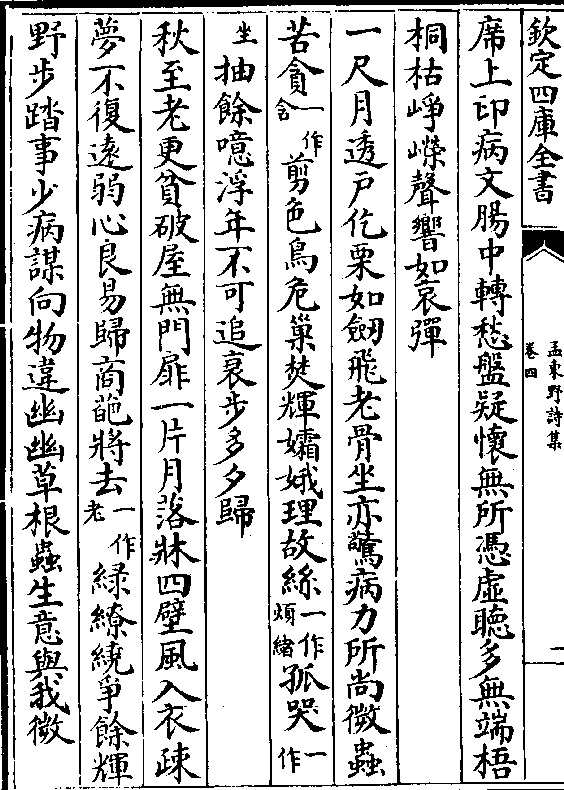 欽定四庫全書
孟東野詩集
卷四
一
席上印病文腸中轉愁盤疑懷無所憑虛聽多無端梧
桐枯崢嶸聲響如哀彈
一尺月透戶仡栗如劒飛老骨坐亦驚病力所尚微蟲
苦貪一作含剪色鳥危巢焚輝孀娥理故絲一作煩緒孤哭一作
坐抽餘噫浮年不可追衰步多夕歸
秋至老更貧破屋無門扉一片月落牀四壁風入衣疎
夢不復遠弱心良易歸商葩將去一作老緑繚繞爭餘輝
野步踏事少病謀向物違幽幽草根蟲生意與我微